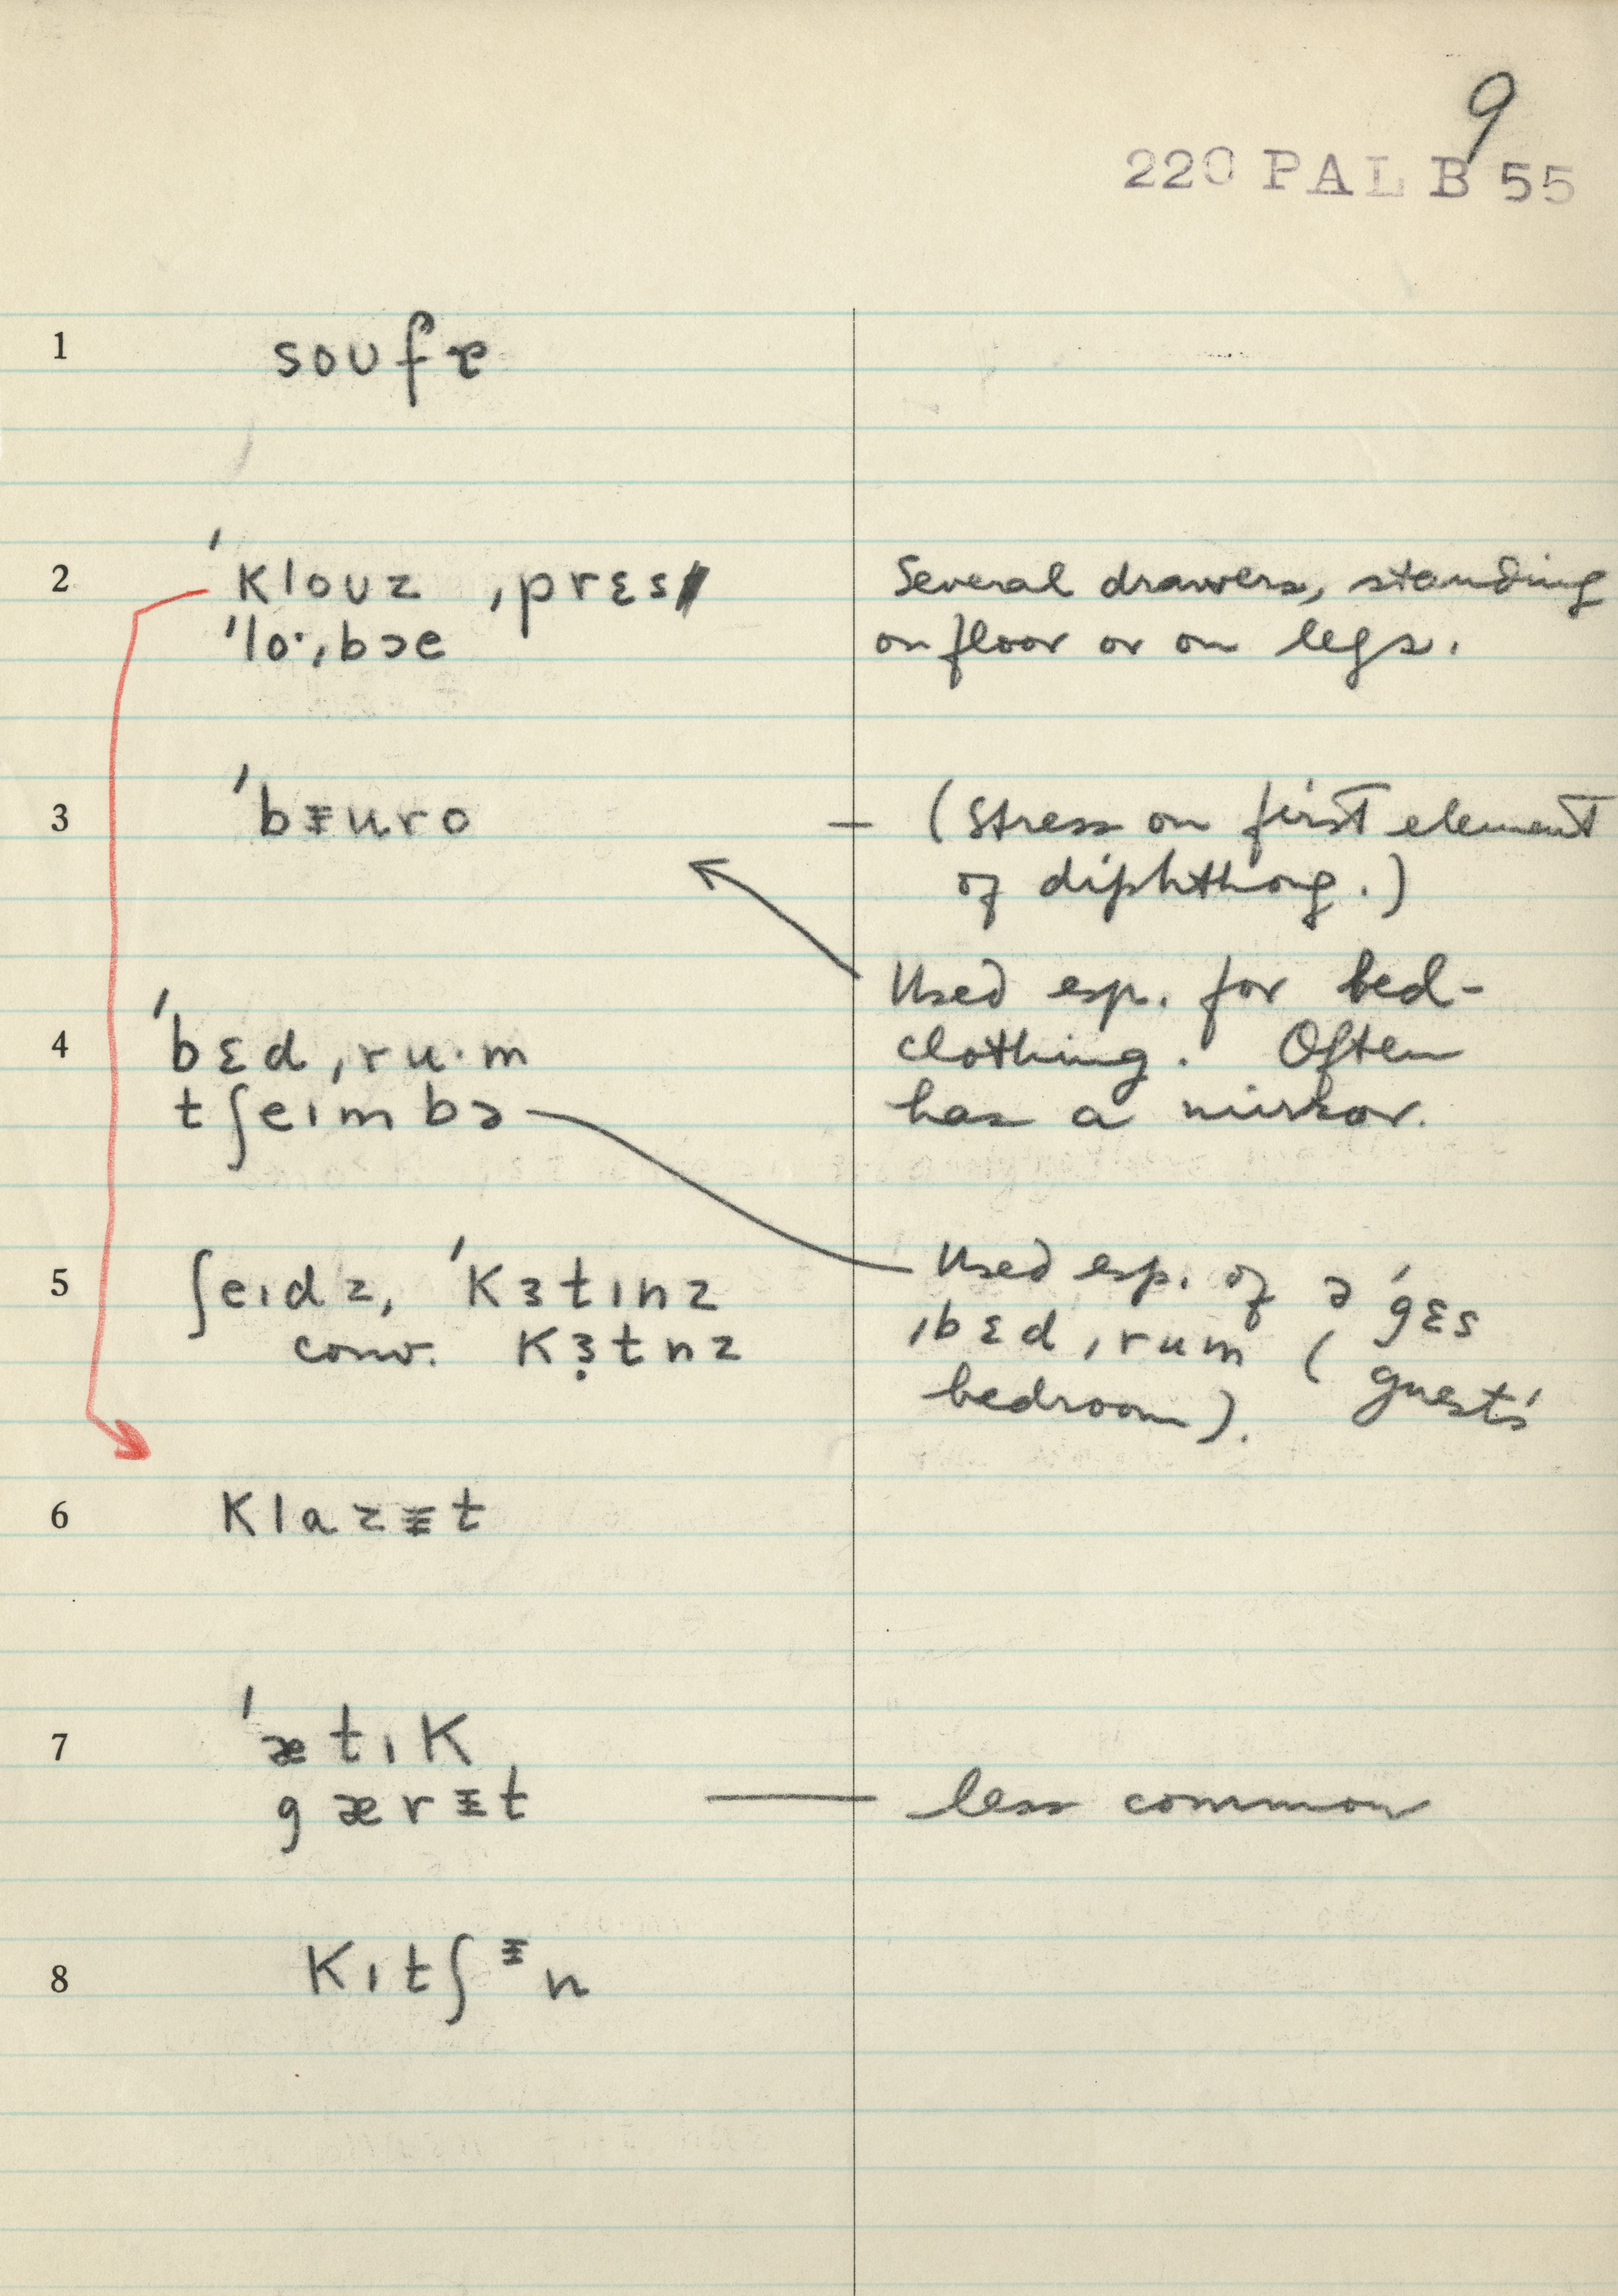 9
220 PAL B 55
1 soufɐ
2 ˈklouz ˌprɛs
ˈloˑˌbɔe
Several drawers, standing
on floor or on legs.
3 ˈbɪuro
— (Stress on first element
of diphthong.)
Used esp. for bed-
clothing. Often
has a mirror.
4 ˈbɛdˌruˑm
tʃeɪmbə
5 ʃeɪdz, ˈkɜtɪnz
conv. kɜtnz
Used esp. of ə ˈgɛs
ˌbɛdˌrum (guests'
bedroom).
6 klazɪt
7 ˈætɪk
gærɪt — less common
8 kɪtʃɪn